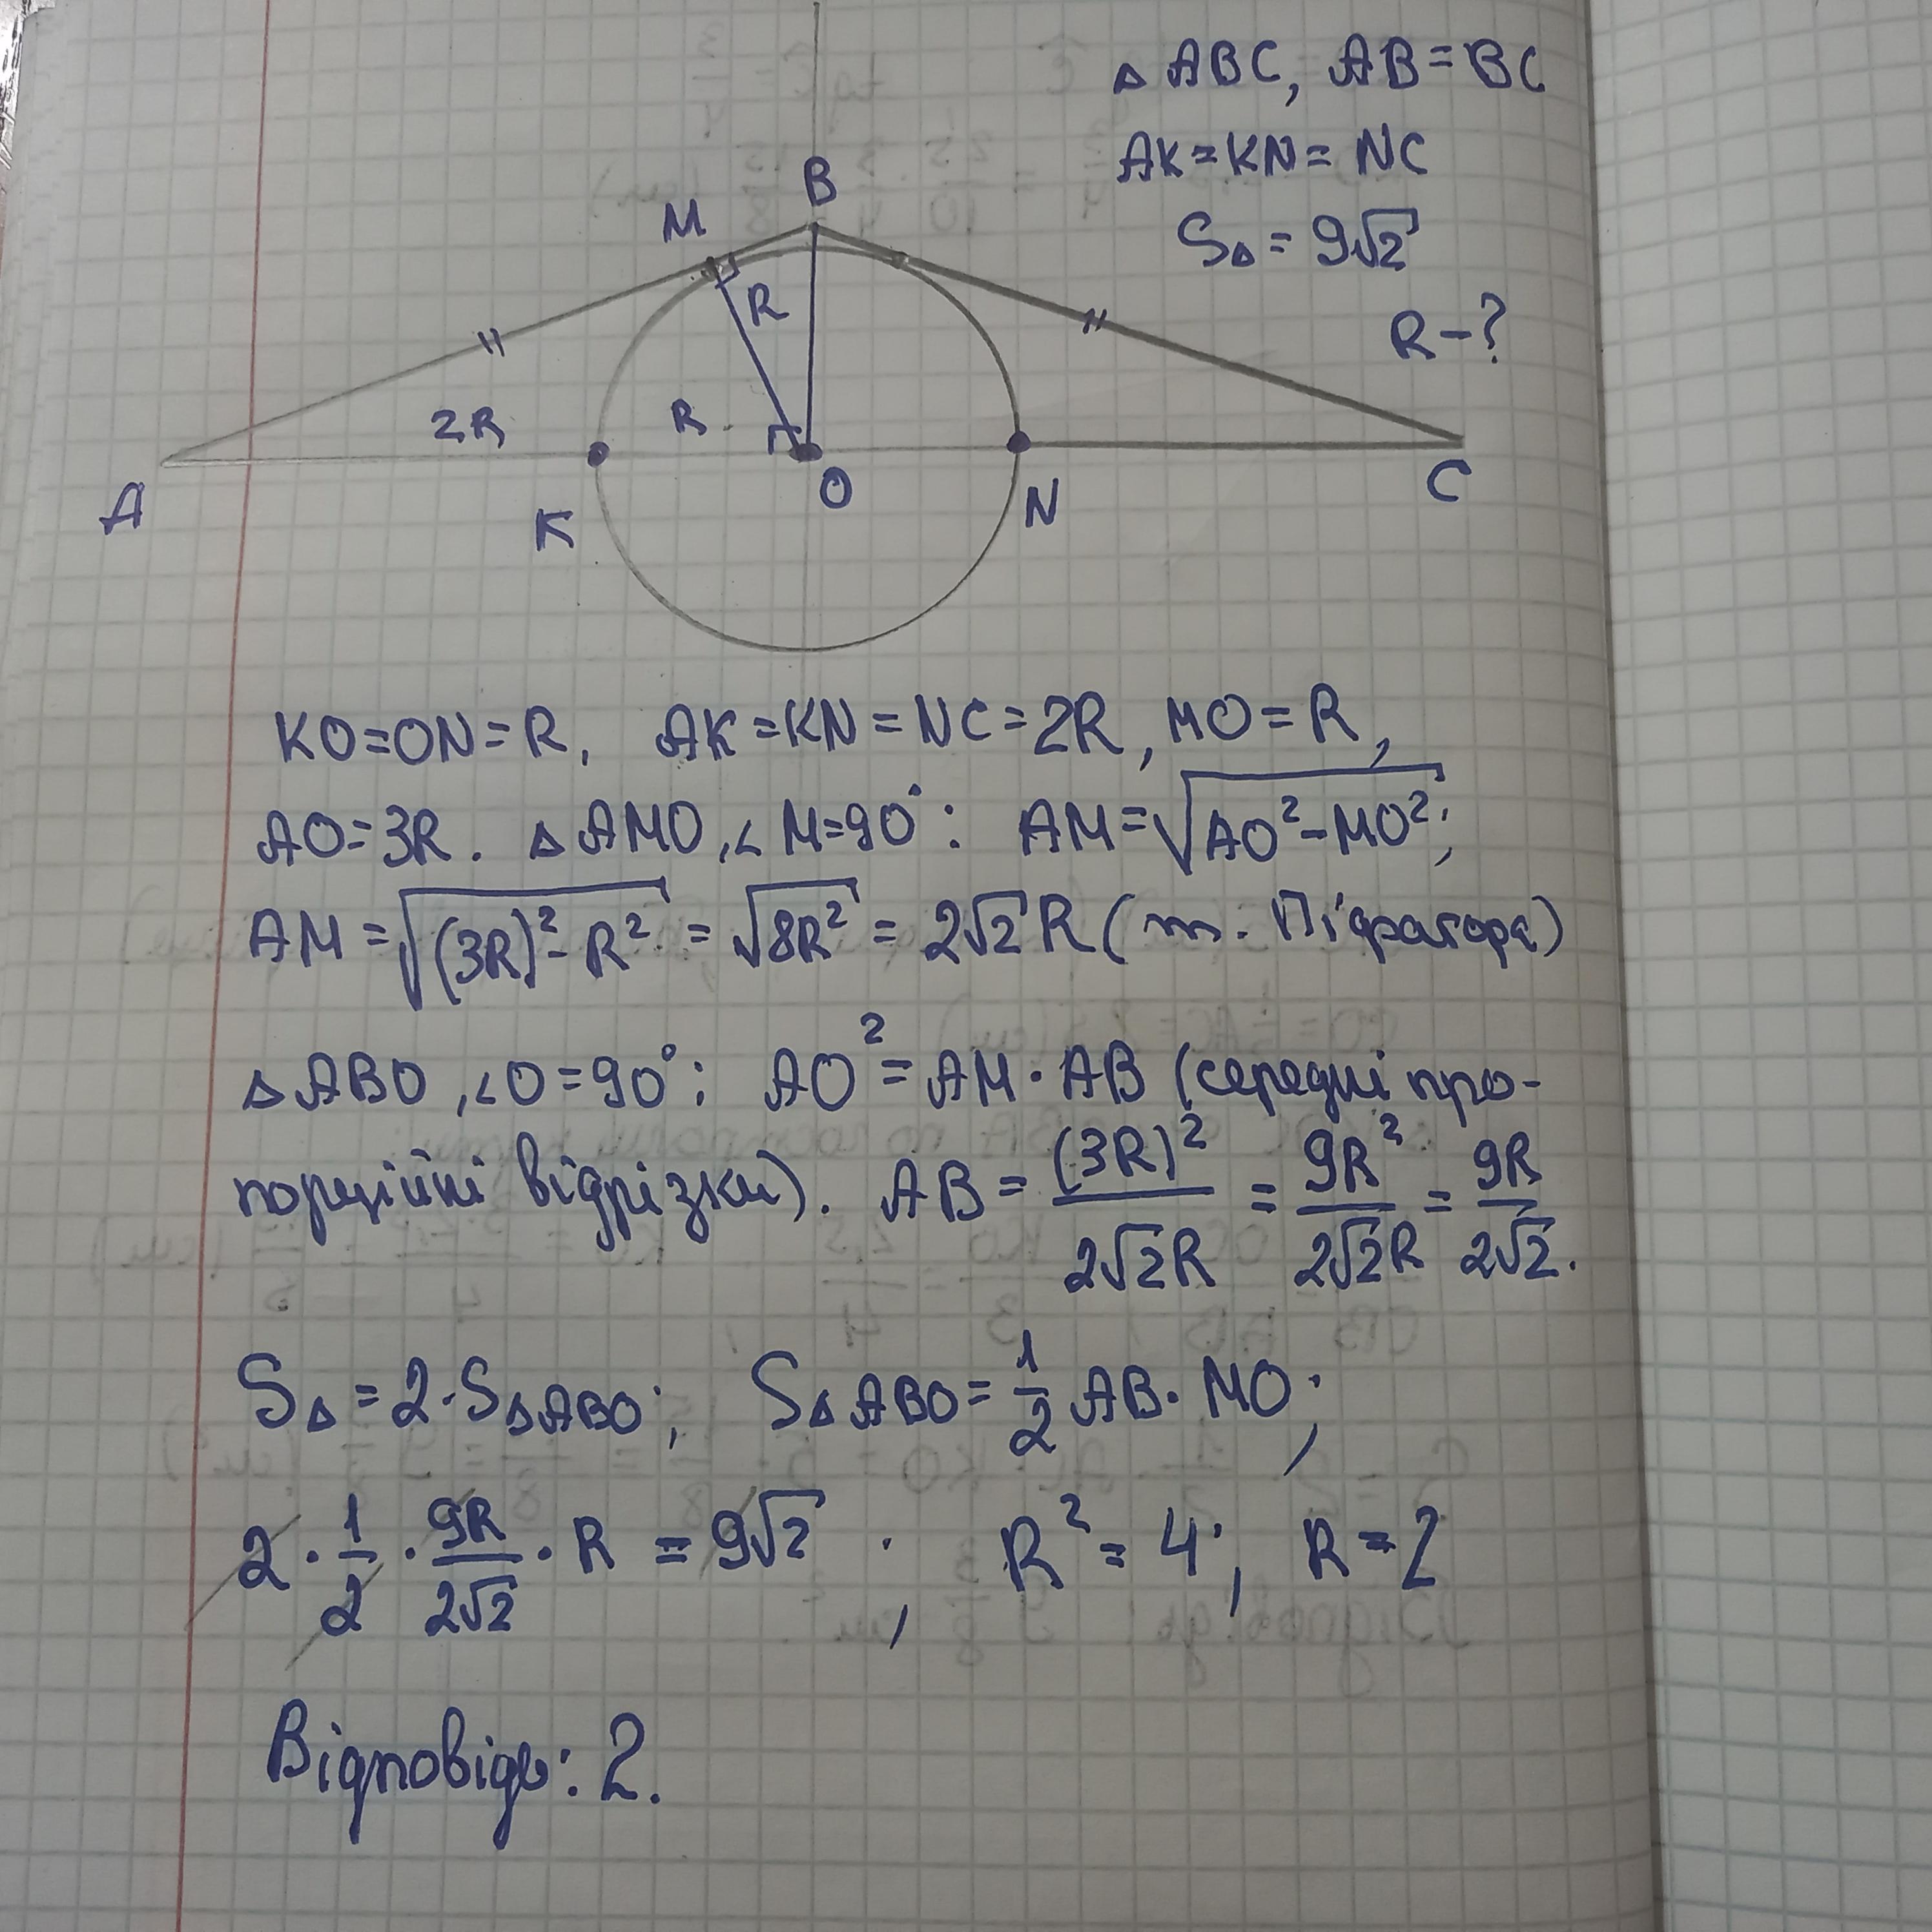 △ ABC, AB = BC
AK = KN = NC
S△ = 9√2
R - ?
B
M
R
2R
R
A
K
O
N
C
KO = ON = R, AK = KN = NC = 2R, MO = R,
AO = 3R. △ AMO, ∠ M = 90°: AM = √(AO² - MO²);
AM = √((3R)² - R²) = √(8R²) = 2√2 R (т. Піфагора)
△ ABO, ∠O = 90°: AO² = AM · AB (середні про-
порційні відрізки). AB = (3R)²/(2√2R) = 9R²/(2√2R) = 9R/(2√2).
S△ = 2 · S△ABO; S△ABO = 1/2 AB · MO;
2 · 1/2 · 9R/(2√2) · R = 9√2; R² = 4; R = 2
Відповідь: 2.